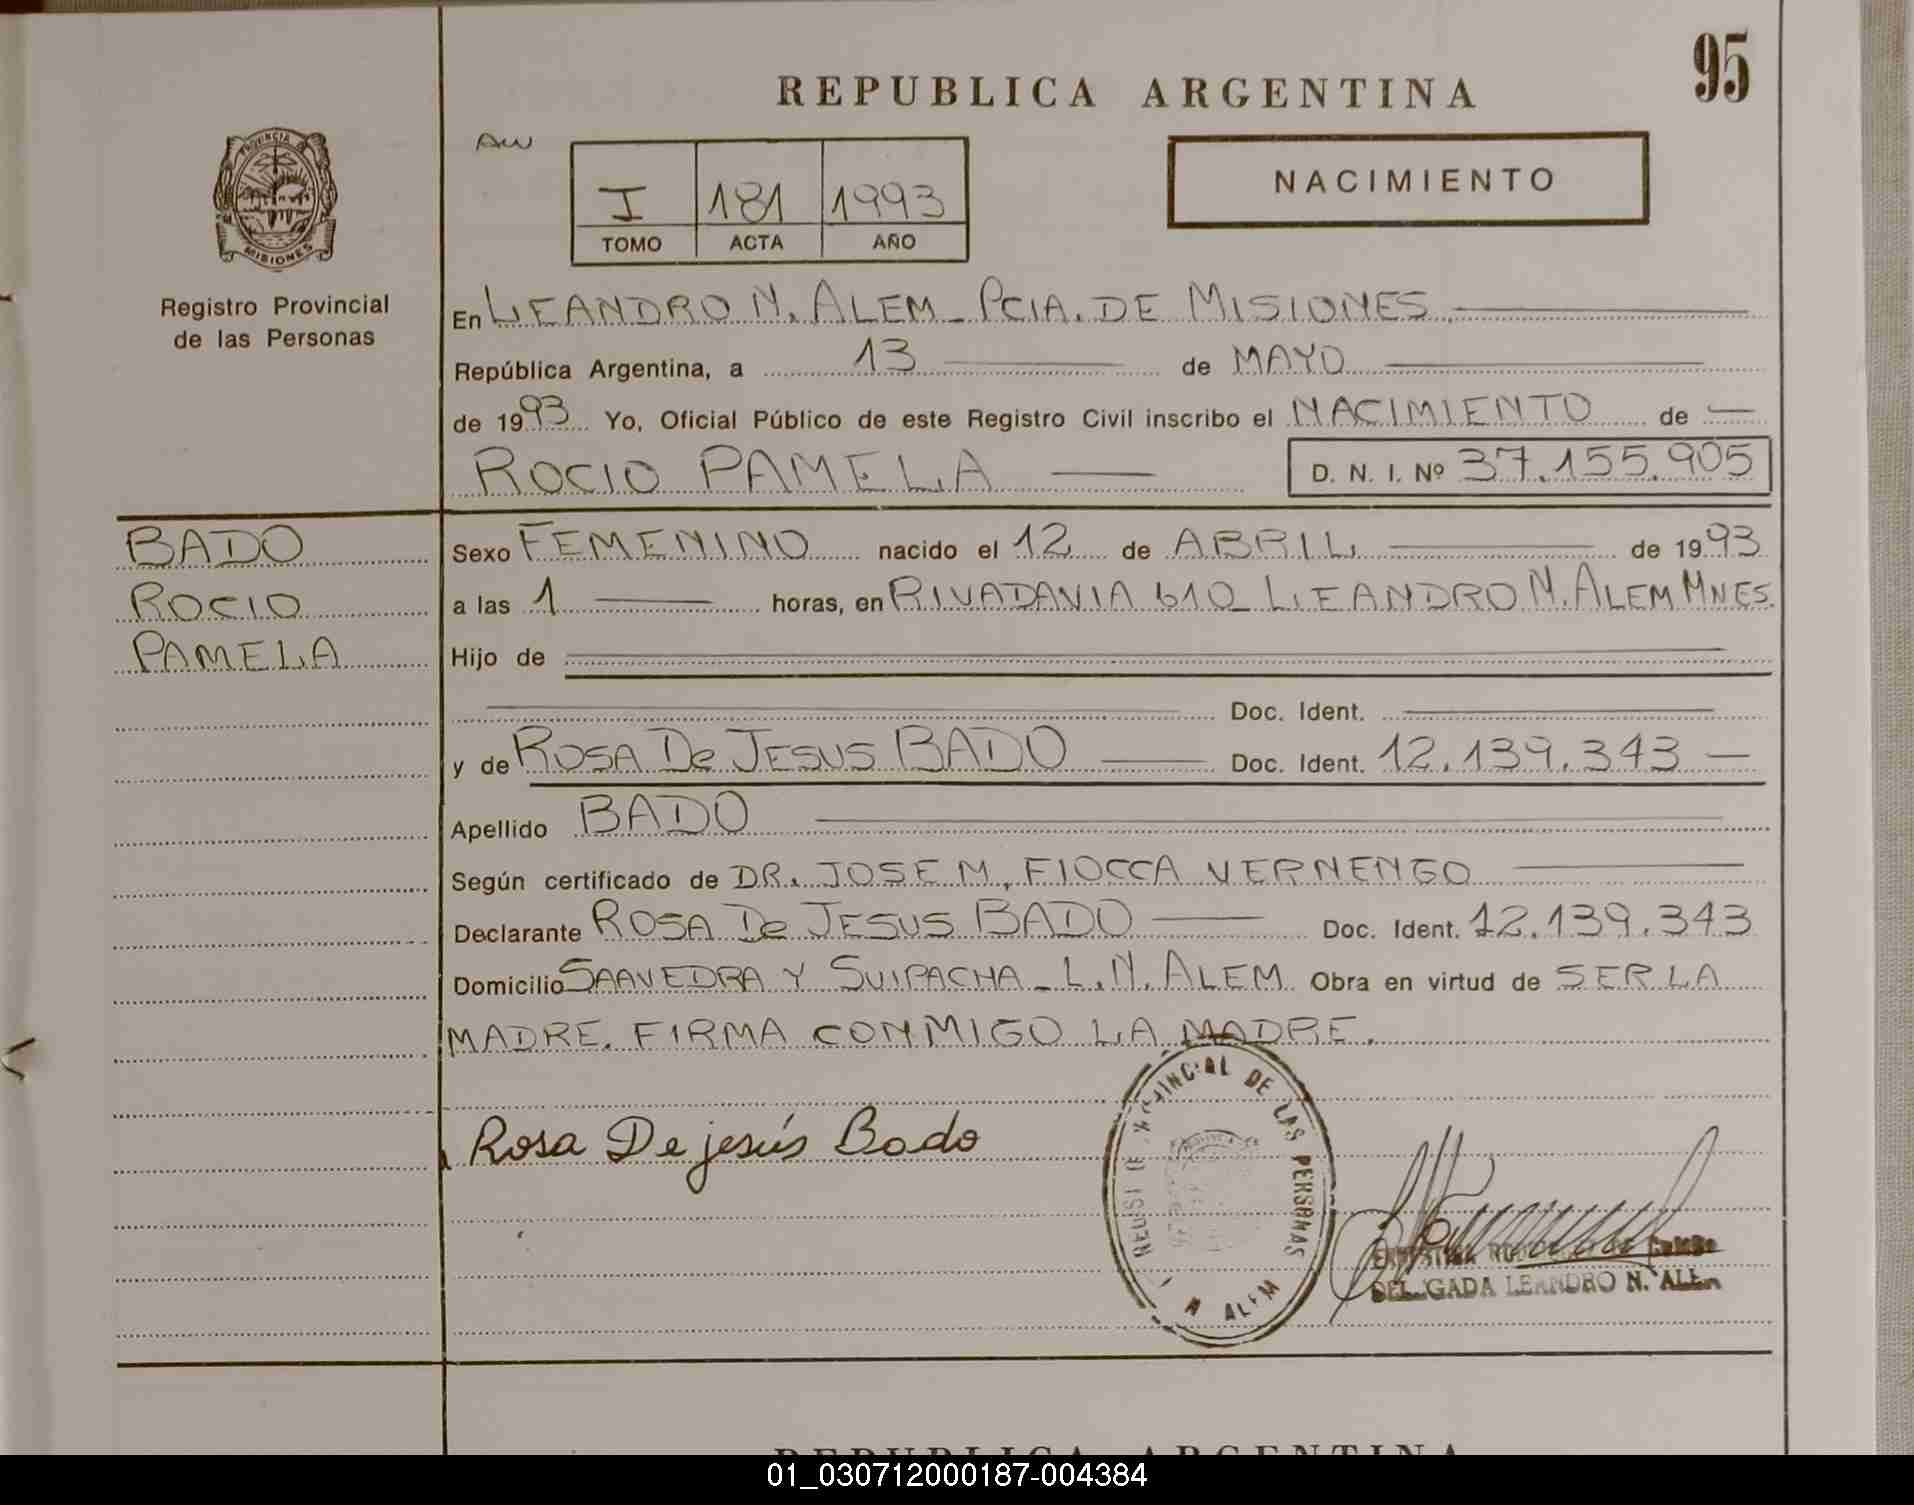 95
REPUBLICA ARGENTINA
I 181 1993
TOMO ACTA AÑO
NACIMIENTO
PROVINCIA
MISIONES
Registro Provincial
de las Personas
En LEANDRO N. ALEM - PCIA. DE MISIONES
República Argentina, a 13 de MAYO
de 1993 Yo, Oficial Público de este Registro Civil inscribo el NACIMIENTO de
ROCIO PAMELA D. N. I. Nº 37.155.905
BADO
ROCIO
PAMELA
Sexo FEMENINO nacido el 12 de ABRIL de 1993
a las 1 horas, en RIVADAVIA 610 - LEANDRO N. ALEM MNES.
Hijo de
Doc. Ident.
y de ROSA De JESUS BADO Doc. Ident. 12.139.343
Apellido BADO
Según certificado de DR. JOSE M. FIOCCA VERNENGO
Declarante ROSA De JESUS BADO Doc. Ident. 12.139.343
Domicilio SAAVEDRA Y SUIPACHA - L.N. ALEM Obra en virtud de SER LA
MADRE. FIRMA CONMIGO LA MADRE.
Rosa De jesús Bado
DE LAS PERSONAS
N ALEM
LEANDRO N. ALEM
REPUBLICA ARGENTINA
01_030712000187-004384